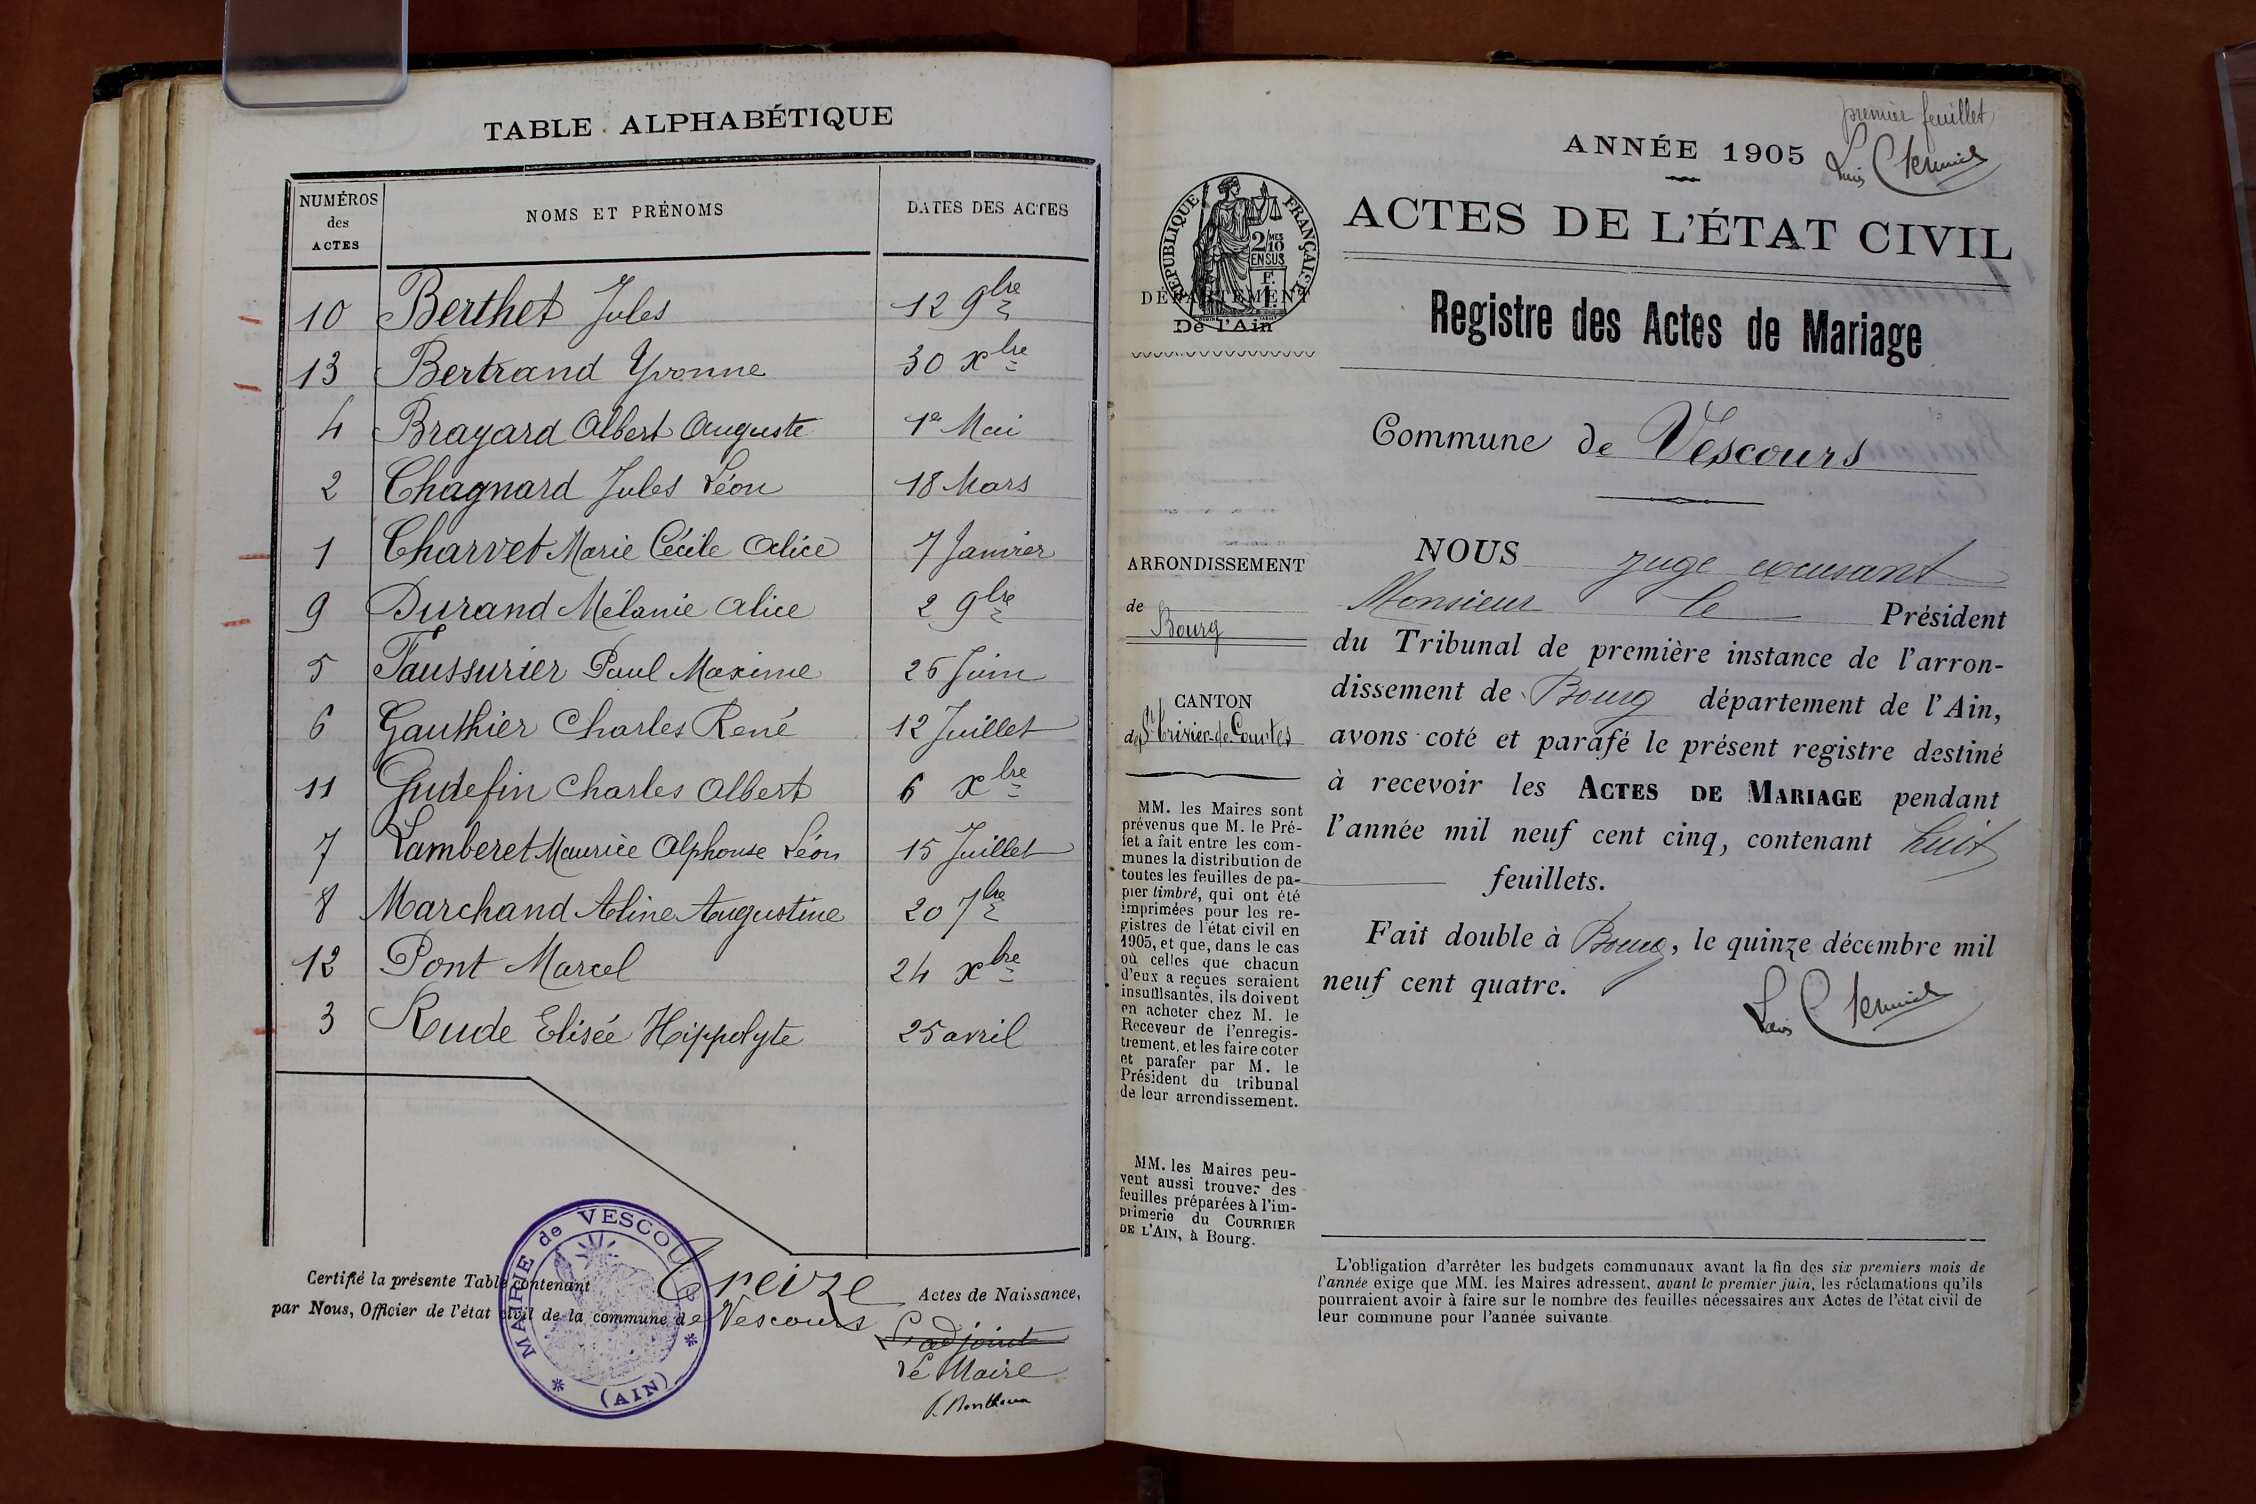 TABLE ALPHABÉTIQUE
NUMÉROS des ACTES NOMS ET PRÉNOMS DATES DES ACTES
10 Berthet Jules 12 9bre
13 Bertrand Yvonne 30 xbre
4 Brayard Albert Auguste 1er Mai
2 Chagnard Jules Léon 18 Mars
1 Charvet Marie Cécile Alice 7 Janvier
9 Durand Mélanie Alice 2 9bre
5 Faussurier Paul Maxime 26 Juin
6 Gauthier Charles René 12 Juillet
11 Gudefin Charles Albert 6 xbre
7 Lamberet Maurice Alphonse Léon 15 Juillet
8 Marchand Aline Augustine 20 7bre
12 Pont Marcel 24 xbre
3 Rude Elisée Hippolyte 25 avril
Certifié la présente Table contenant Treize Actes de Naissance,
par Nous, Officier de l'état civil de la commune de Vescours
L'adjoint
Le Maire
MAIRIE de VESCOURS
(AIN)
premier feuillet
ANNÉE 1905
ACTES DE L'ÉTAT CIVIL
RÉPUBLIQUE FRANÇAISE
2/10 MES
EN SUS
DÉPARTEMENT
De l'Ain
Registre des Actes de Mariage
Commune de Vescours
ARRONDISSEMENT
de
Bourg
CANTON
de St Trivier-de-Courtes
MM. les Maires sont
prévenus que M. le Pré-
fet a fait entre les com-
munes la distribution de
toutes les feuilles de pa-
pier timbré, qui ont été
imprimées pour les re-
gistres de l'état civil en
1905, et que, dans le cas
où celles que chacun
d'eux a reçues seraient
insuffisantes, ils doivent
en acheter chez M. le
Receveur de l'enregis-
trement, et les faire coter
et parafer par M. le
Président du tribunal
de leur arrondissement.
MM. les Maires peu-
vent aussi trouver des
feuilles préparées à l'im-
primerie du COURRIER
DE L'AIN, à Bourg.
NOUS juge excusant
Monsieur le Président
du Tribunal de première instance de l'arron-
dissement de Bourg département de l'Ain,
avons coté et parafé le présent registre destiné
à recevoir les ACTES DE MARIAGE pendant
l'année mil neuf cent cinq, contenant huit
feuillets.
Fait double à Bourg, le quinze décembre mil
neuf cent quatre.
L'obligation d'arrêter les budgets communaux avant la fin des six premiers mois de
l'année exige que MM. les Maires adressent, avant le premier juin, les réclamations qu'ils
pourraient avoir à faire sur le nombre des feuilles nécessaires aux Actes de l'état civil de
leur commune pour l'année suivante